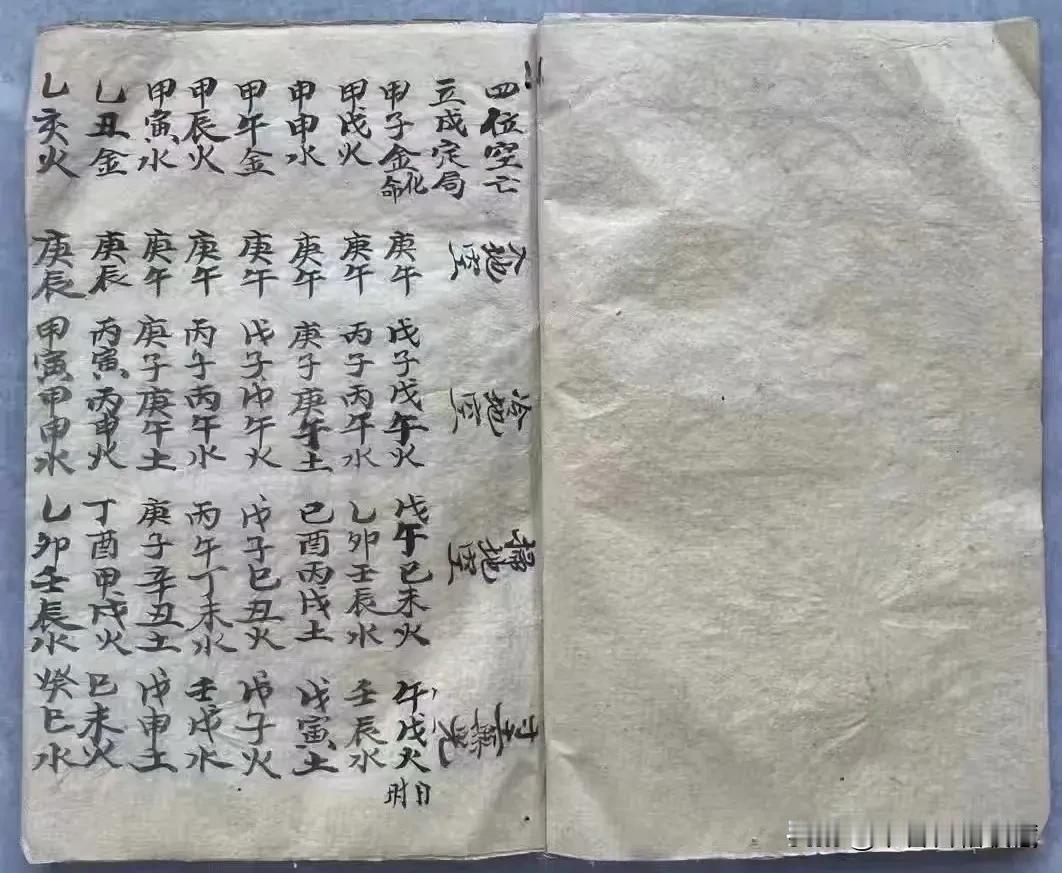 四位空亡
立成定局
地空
冷地空
掃地空
無光
甲子金化命 庚午 戊子戊午火 戊午己未火 午戊火 日時
甲戌火 庚午 丙子丙午水 乙卯壬辰水 壬辰水
申申水 庚午 庚子庚午土 己酉丙戌土 戊寅土
甲午金 庚午 戊子戊午火 戊子己丑火 戊子火
甲辰火 庚午 丙午丙午水 丙午丁未水 壬戌水
甲寅水 庚午 庚子庚午土 庚子辛丑土 戊申土
乙丑金 庚辰 丙寅丙申火 丁酉甲戌火 己未火
乙亥火 庚辰 甲寅甲申水 乙卯壬辰水 癸巳水